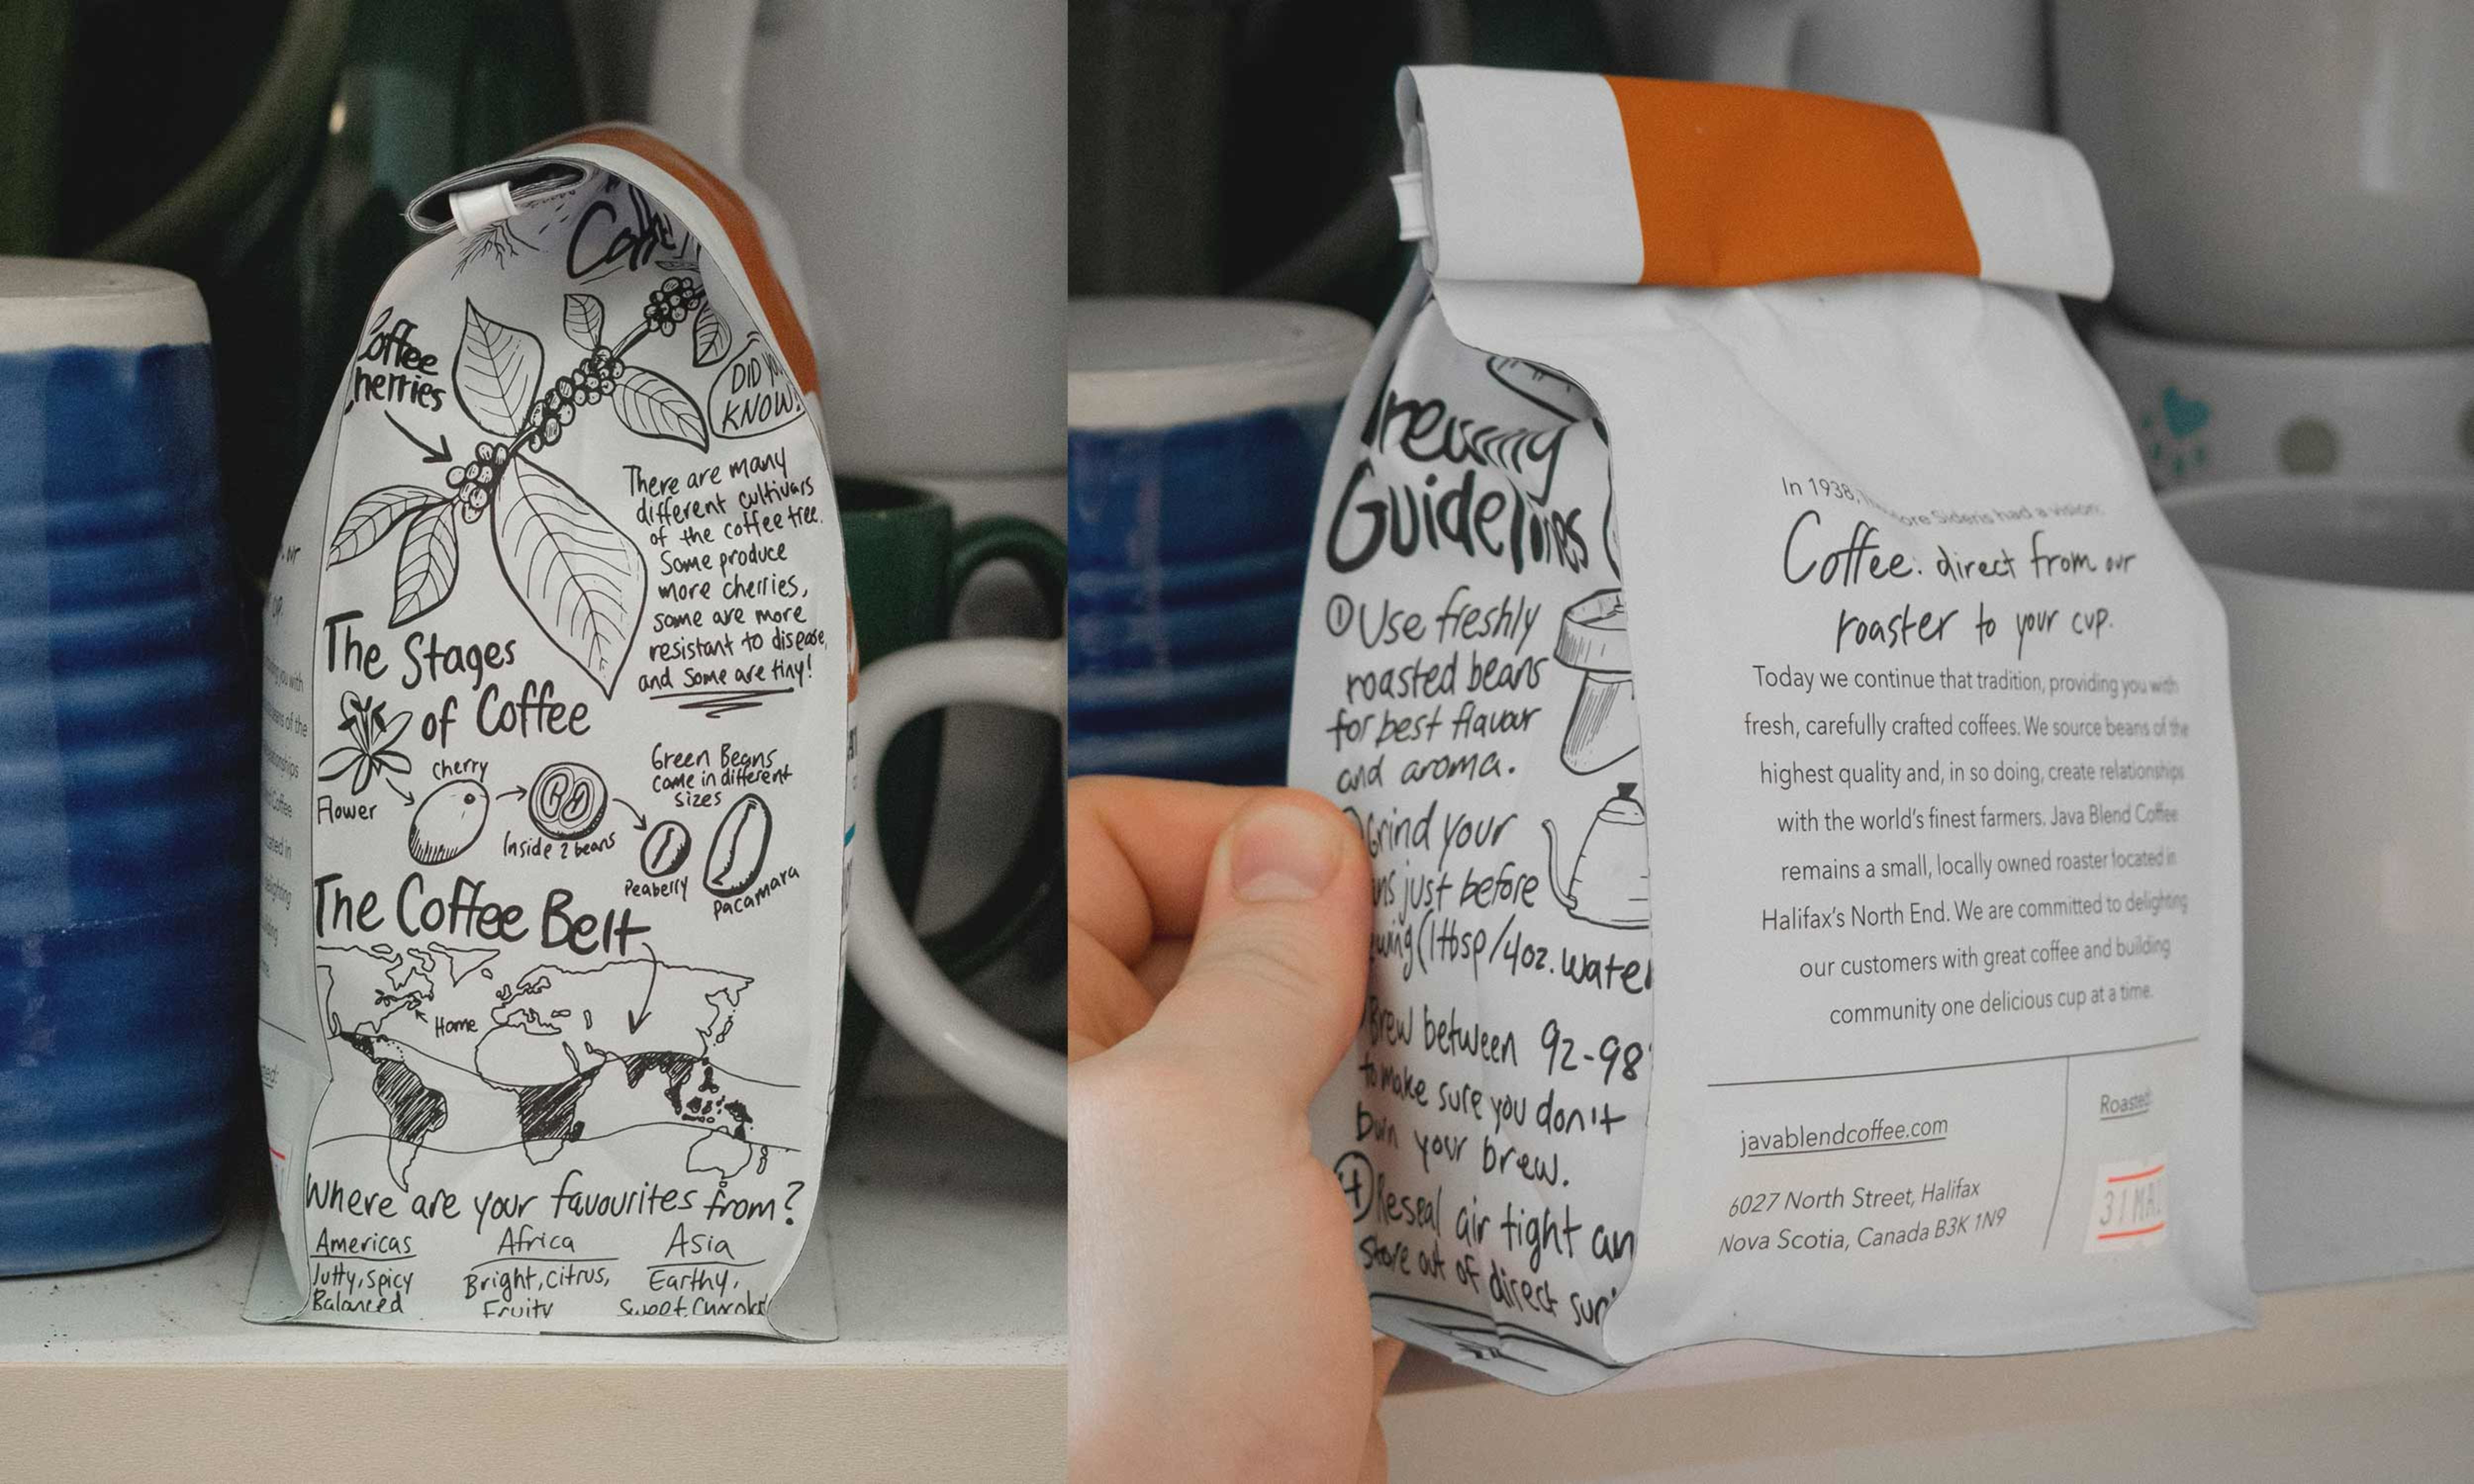 Coffee
Cherries
DID YOU
KNOW!
There are many
different cultivars
of the coffee tree.
Some produce
more cherries,
some are more
resistant to disease,
and some are tiny!
The Stages
of Coffee
Flower
Cherry
Inside 2 beans
Green Beans
come in different
sizes
Peaberry
Pacamara
The Coffee Belt
Home
Where are your favourites from?
Americas
utty, spicy
Balanced
Africa
Bright, citrus,
Fruity
Asia
Earthy,
Sweet, Chocolat
rewing
Guidelines
① Use freshly
roasted beans
for best flavour
and aroma.
Grind your
ns just before
ewing (1tbsp/4oz. water
Brew between 92-98°
to make sure you don't
burn your brew.
④ Reseal air tight an
store out of direct sun
In 1938, ore Sideris had a vision:
Coffee: direct from our
roaster to your cup.
Today we continue that tradition, providing you with
fresh, carefully crafted coffees. We source beans of the
highest quality and, in so doing, create relationships
with the world's finest farmers. Java Blend Coffee
remains a small, locally owned roaster located in
Halifax's North End. We are committed to delighting
our customers with great coffee and building
community one delicious cup at a time.
javablendcoffee.com
6027 North Street, Halifax
Nova Scotia, Canada B3K 1N9
Roasted:
31 MA